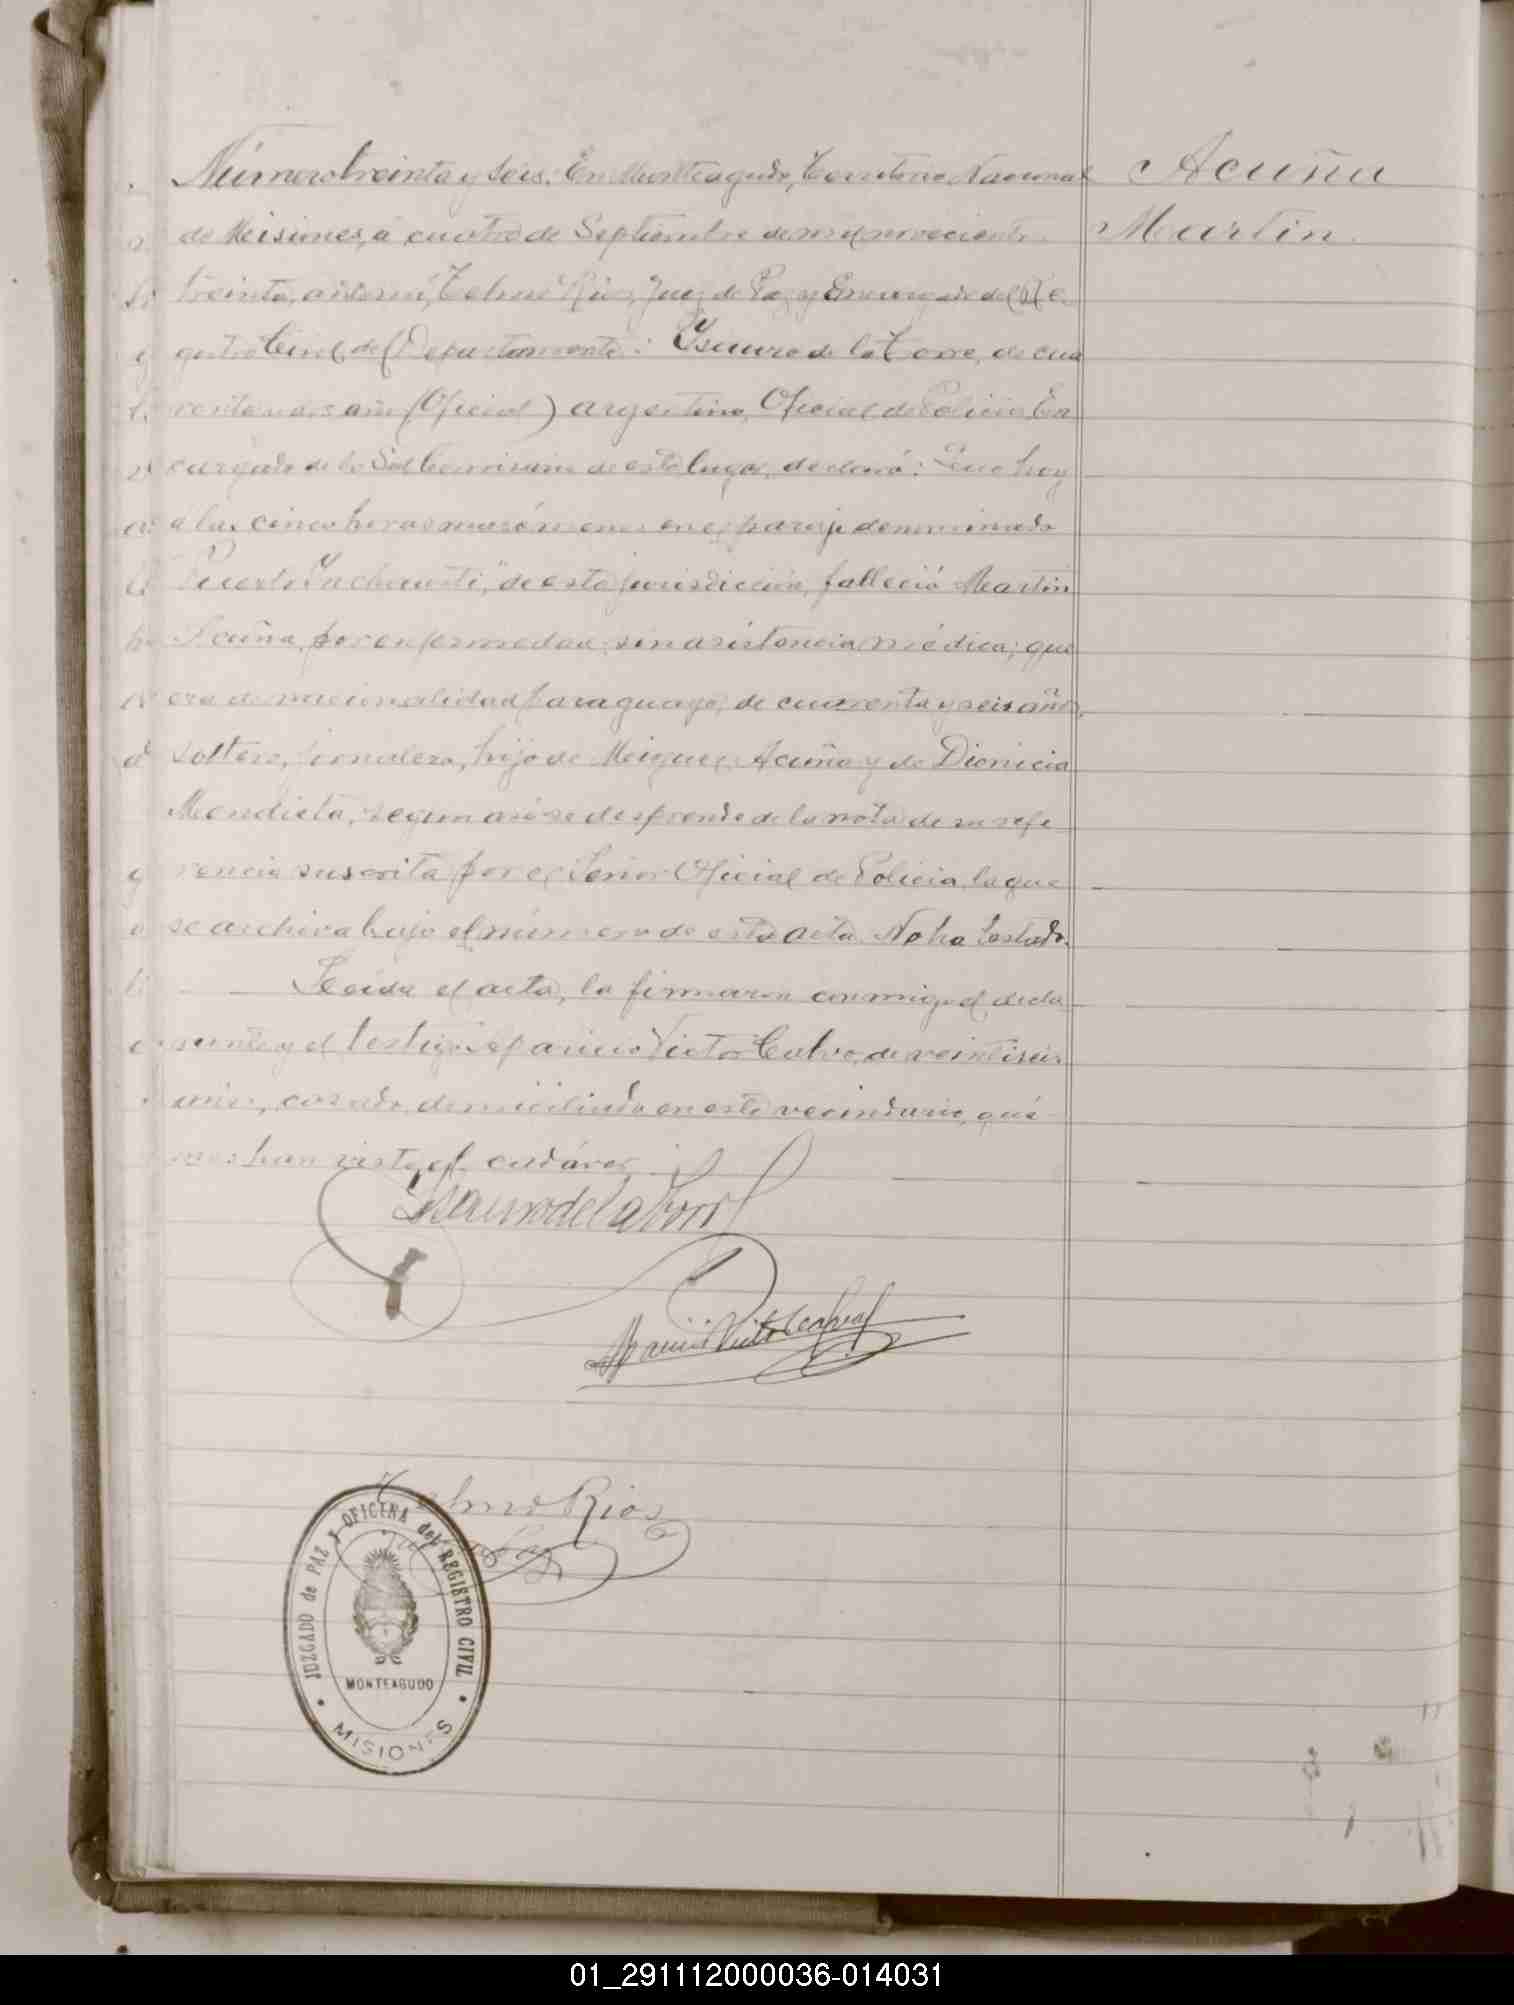 Número treinta y seis. En Monteagudo, Territorio Nacional
de Misiones, á cuatro de Septiembre de mil novecientos
treinta, ante mí, Telmo Rios, Juez de Paz y Encargado del Re
gistro Civil del Departamento: Ysauro de la Torre, de cua
renta y dos años (Oficial) argentino, Oficial de Policia En
cargado de la Sub Comisaria de este lugar, declaró: Que hoy
a las cinco horas mas ó menos en el paraje denominado
"Puerto de esta jurisdicción, falleció Martin
Acuña, por enfermedad, sin asistencia médica; que
era de nacionalidad paraguayo, de cuarenta y seis años,
soltero, jornalero, hijo de Miguel Acuña y de Dionicia
Mendieta, segun asi se desprende de la nota de su refe
rencia suscrita por el Señor Oficial de Policia, la que
se archiva bajo el número de esta acta. No ha testado.
Leida el acta, la firmaron conmigo el decla
rante y el testigo Aparicio Victor Calvo, de veintiseis
años, casado, domiciliado en este vecindario, qué
nes han visto el cadáver.
Acuña
Martin.
Ysauro de la Torre
Aparicio Victor
Telmo Rios
Juez de Paz
JUZGADO de PAZ Y OFICINA del REGISTRO CIVIL
MONTEAGUDO
MISIONES
01_291112000036-014031